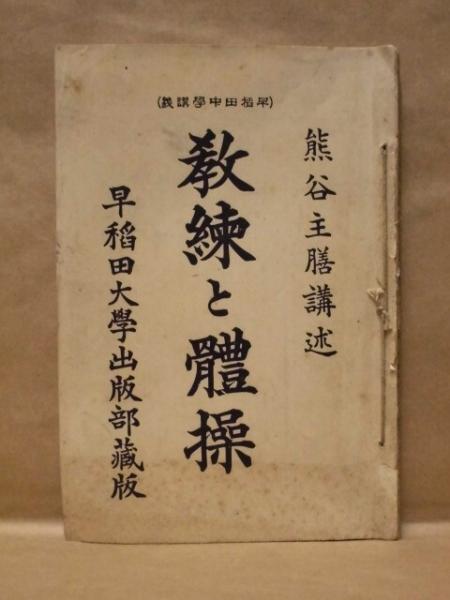 (早稲田中學講義)
熊谷主膳講述
教練と體操
早稲田大學出版部藏版